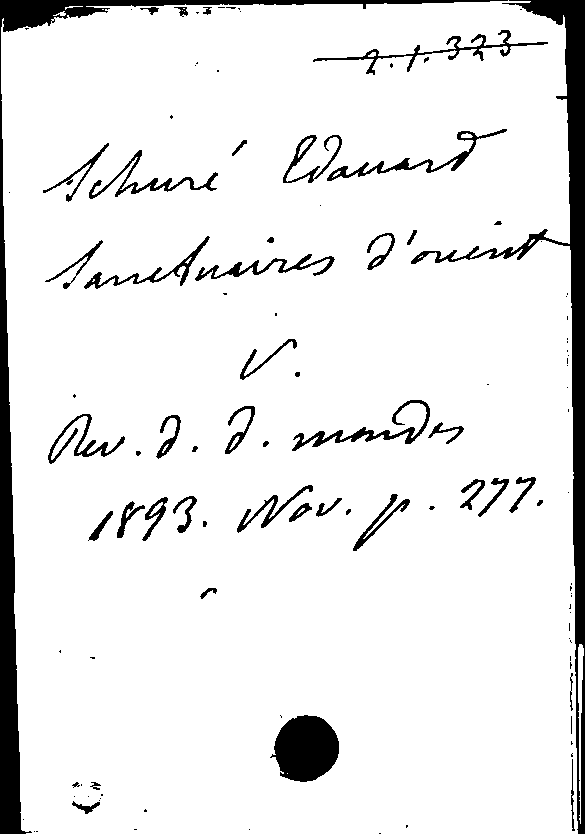 2.1.323
Schuré Edouard
Sanctuaires d'orient
V.
Rev. d. d. mondes
1893. Nov. p. 277.